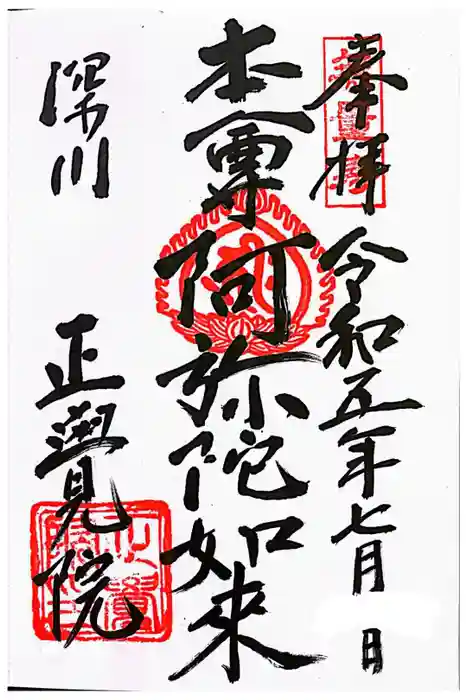 奉拝
令和五年七月 日
本尊阿弥陀如来
深川
正覺院